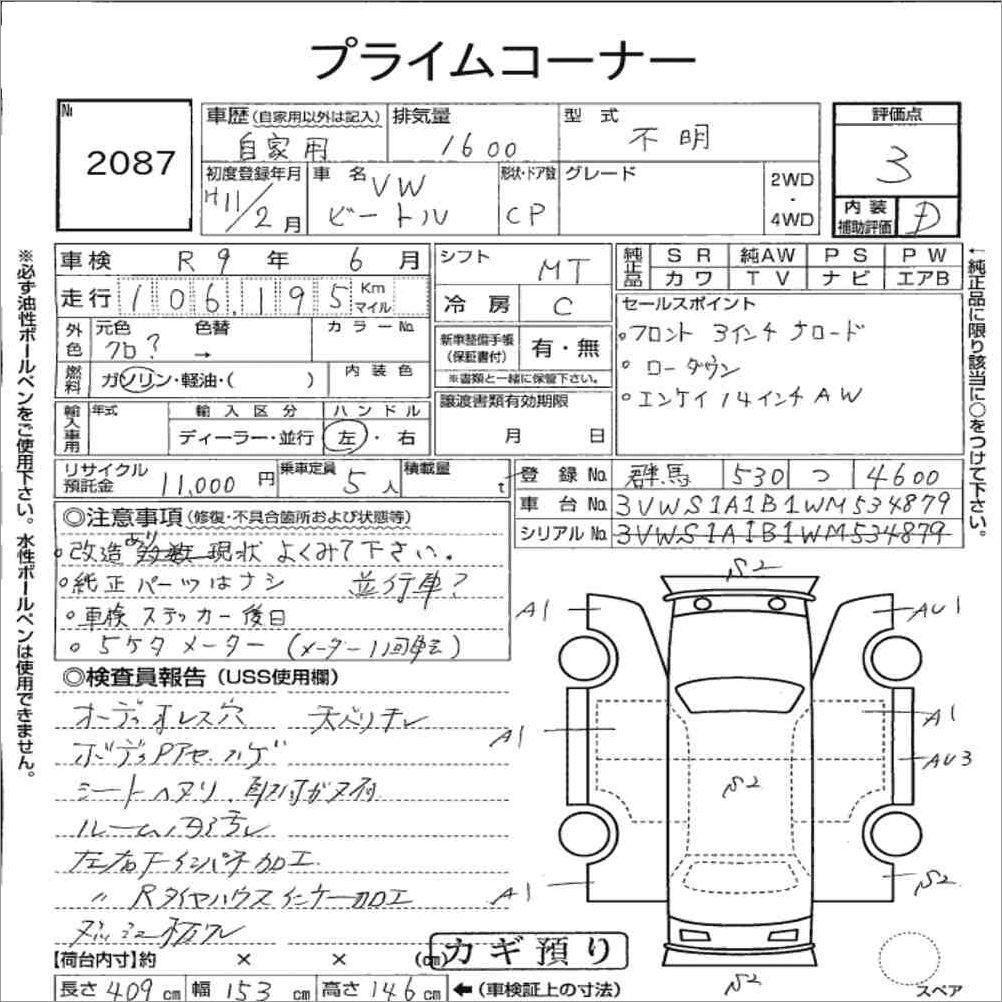 プライムコーナー
№ 2087
車歴 (自家用以外は記入) 自家用
排気量 1600
型式 不明
評価点 3
内装補助評価 D
初度登録年月 H11/2月
車名 VW ビートル
形状・ドア数 CP
グレード
2WD・4WD
車検 R9年 6月
走行 106,195 Km マイル
シフト MT
冷房 C
純正品 SR 純AW PS PW
カワ TV ナビ エアB
外色 元色 クロ? 色替 → カラーNo.
燃料 ガソリン・軽油・( )
内装色
新車整備手帳(保証書付) 有・無
※書類と一緒に保管下さい。
セールスポイント
○フロント 3インチ ナロード
○ローダウン
○エンケイ 14インチAW
輸入車用 年式 輸入区分 ディーラー・並行
ハンドル 左・右
譲渡書類有効期限 月 日
リサイクル預託金 11,000円
乗車定員 5人
積載量 t
登録No. 群馬 530 つ 4600
車台No. 3VWS1A1B1WM534879
シリアルNo. 3VWS1A1B1WM534879
◎注意事項 (修復・不具合箇所および状態等)
○改造あり 現状よくみて下さい。
○純正パーツはナシ 並行車?
○車検ステッカー後日
○5ケタメーター (メーター1回転)
◎検査員報告 (USS使用欄)
オーディオレス穴 天ベリキレ
ボディPアセ、ハゲ
シートヘタリ、取付ガタ有
ルーム内汚レ
左右下インパネ加工
〃 Rタイヤハウスインナー加工
ダッシュ板ワレ
【荷台内寸】約 × × (cm)
カギ預り
長さ 409 cm 幅 153 cm 高さ 146 cm ←(車検証上の寸法)
S2
A1
AU1
A1
A1
AU3
S2
A1
S2
S2
スペア
※必ず油性ボールペンをご使用下さい。水性ボールペンは使用できません。
←純正品に限り該当に○をつけて下さい。